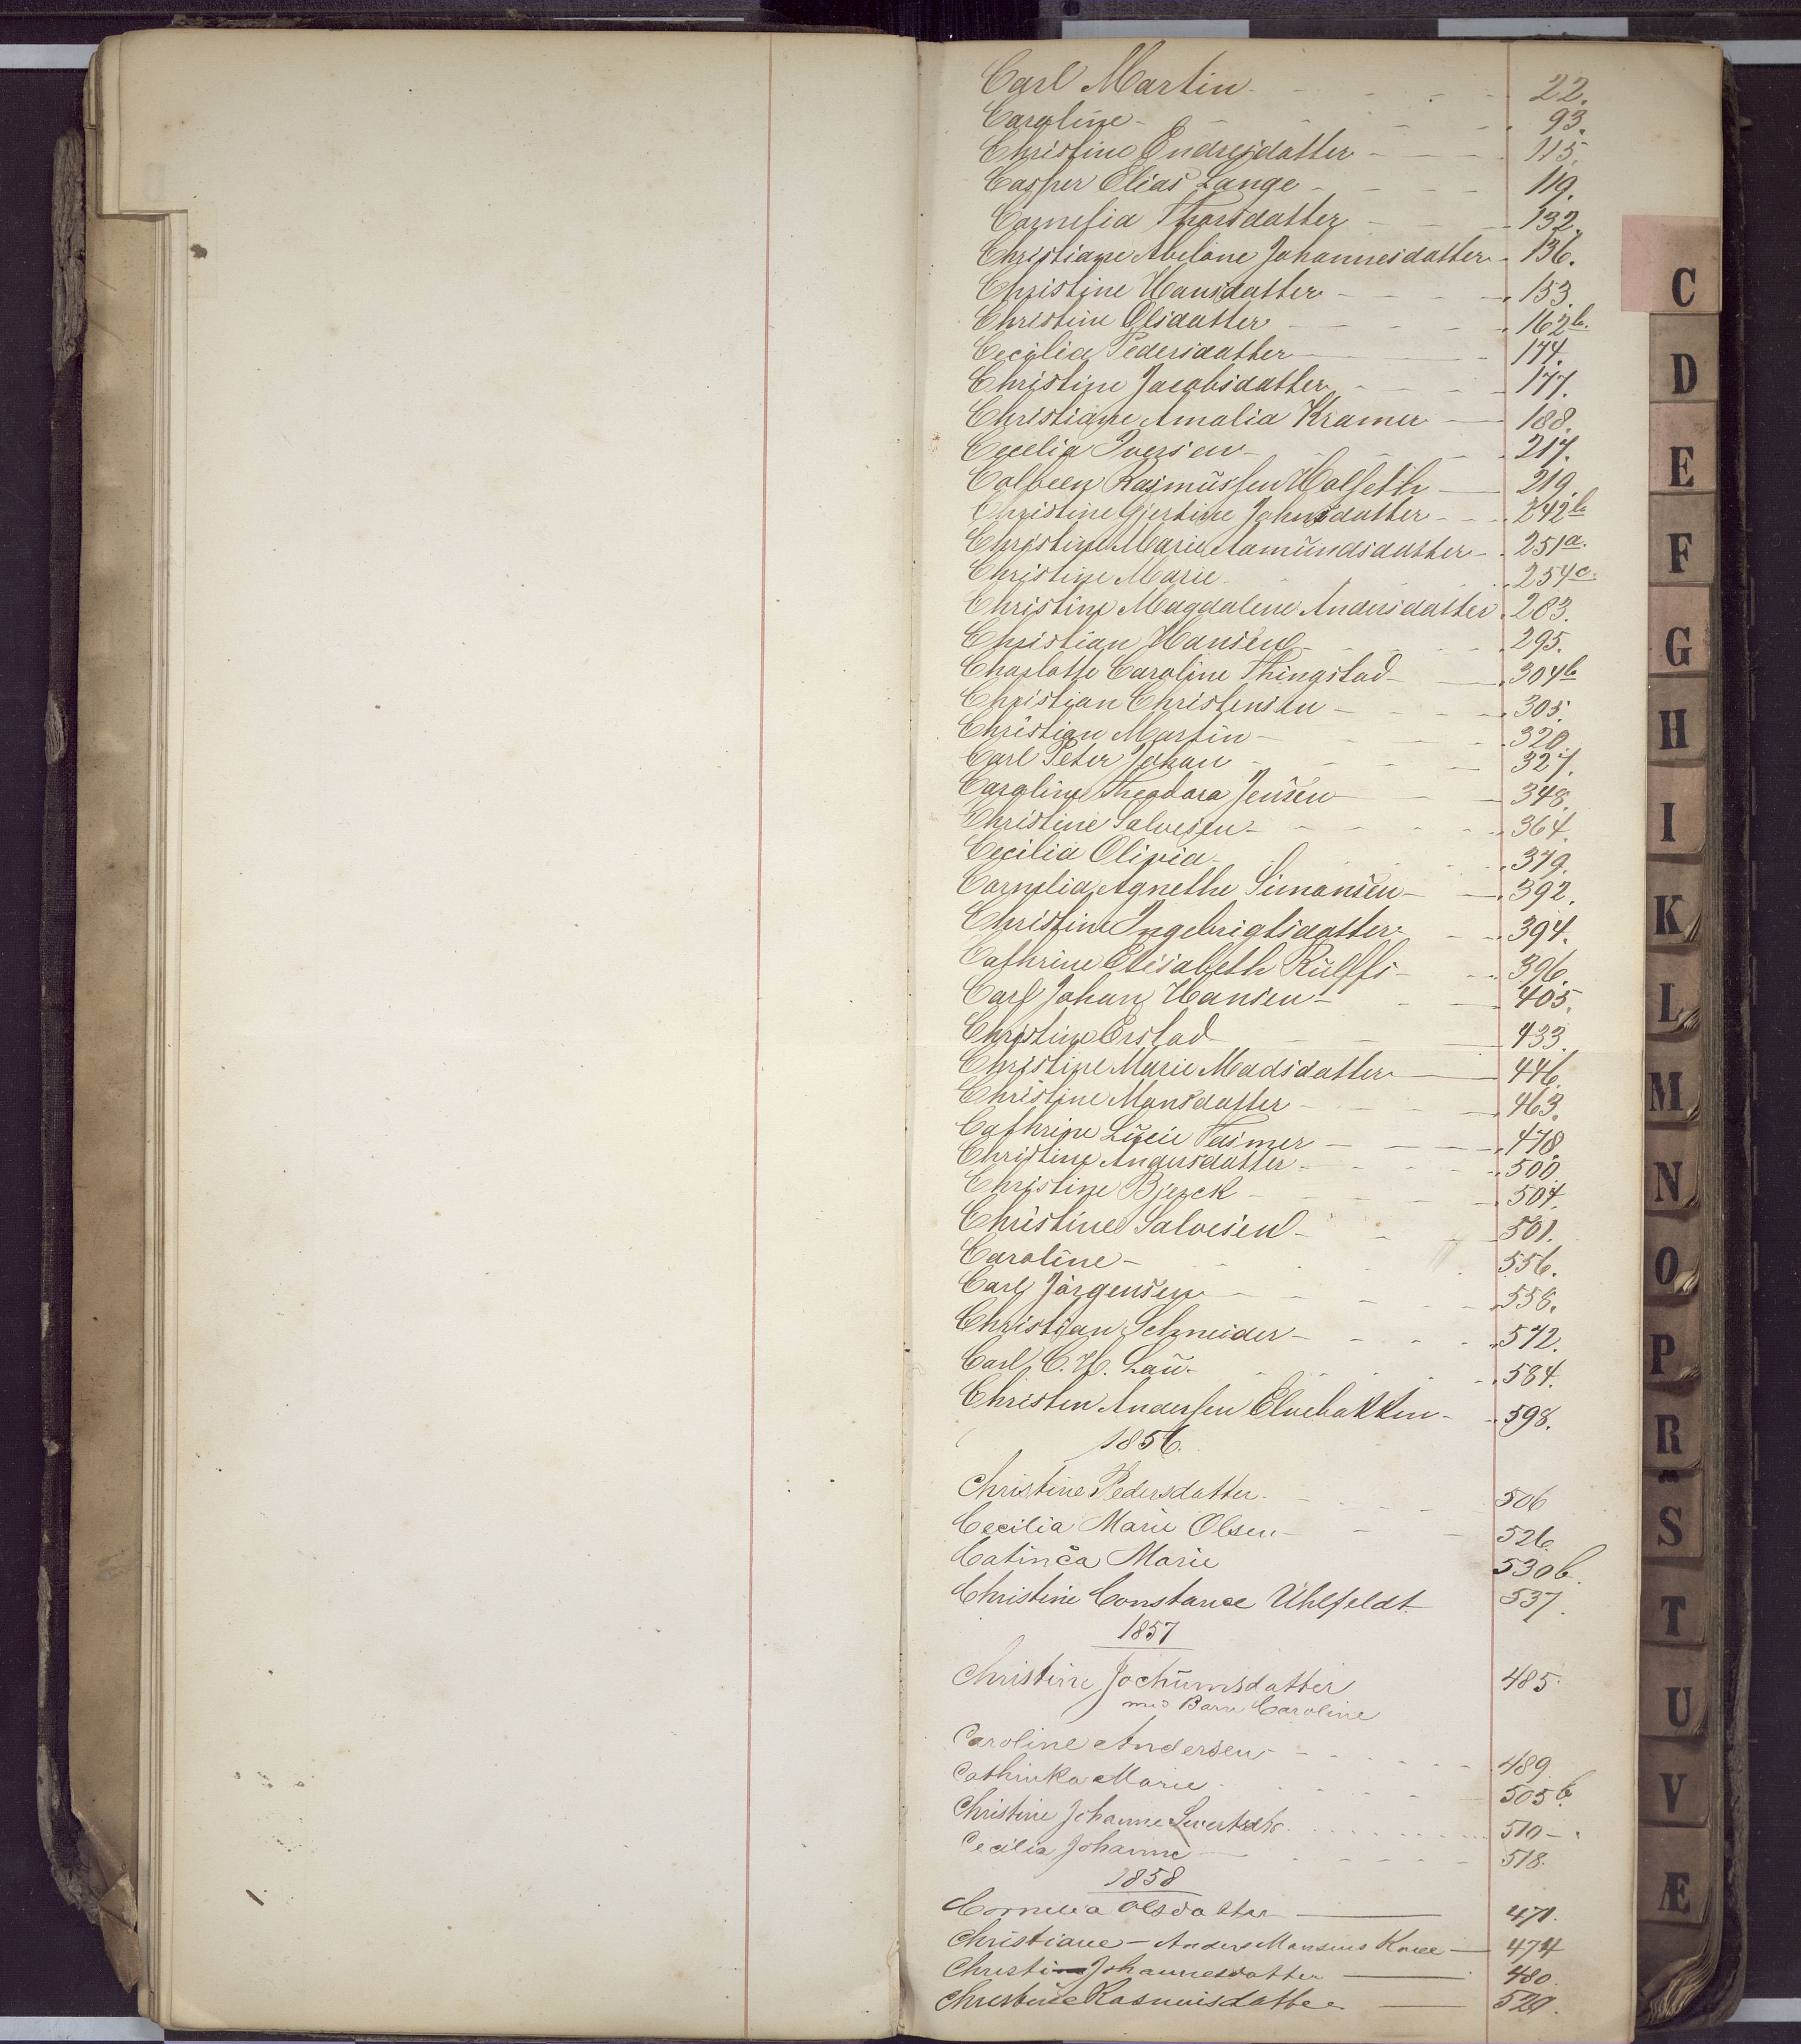 Carl Martin - - - - 22.
Caroline - - - - 93.
Christine Endresdatter - - - - 115.
Casper Elias Lange - - - - 119.
Cornelia Thorsdatter - - - 132.
Christiane Abelone Johannesdatter - 136.
Christine Hansdatter - - - - 153.
Christine Olsdatter - - - - 162b.
Cecilia Pedersdatter - - - 174.
Christine Jacobsdatter - - - - 177.
Christiane Amalia Kramer - 188.
Cecelia Iversen - - - - 217.
Colbeen Rasmussen Holseth - 219.
Christine Gjertine Johnsdatter - - - 242b
Christine Marie Aamundsdatter - 251a.
Christine Marie - - - 254c.
Christine Magdalene Andersdatter 283.
Christian Hansen - - - - 295.
Charlotte Caroline Thingstad - - 304b
Christian Christensen - - - - 305.
Christian Martin - - - - 320.
Carl Peter Johan - - - - 327.
Caroline Theodora Jensen - - - 348.
Christine Salvesen - - - - 364.
Cecilia Olivia - - - - 379.
Cornelia Agnethe Simonsen - - 392.
Christine Ingebrigtsdatter - - 394.
Cathrine Elisabeth Rulffs - - 396.
Carl Johan Hansen - - - 405.
Christine Erstad - - - 433.
Christine Marie Madsdatter - 446.
Christine Monsdatter - - - - 463.
Cathrine Lucie - - - 478.
Christine Andersdatter - - - - 500.
Christine Bjerck - - - - 504.
Christine Salvesen - - - 501.
Caroline - - - - 556.
Carl Jörgensen - - - - 558.
Christian Schneider - - - - 572.
Carl C. H. Lau - - - - 584.
Christen Andersen Elvebakken - 598.
1856.
Christine Pedersdatter - - - - 506
Cecilia Marie Olsen - - - 526.
Catinca Marie 530b.
Christine Constance Uhlfeldt 537.
1857
Christine Jochumsdatter 485.
med Barn Caroline
Caroline Andersen - - - - 489.
Cathinka Marie - - - - 505b.
Christine Johanne Sivertsdtr. - - - - 510 -
Cecilia Johanne - - - - 518.
1858
Cornelia Olsdatter - 471.
Christiane - Anders Monsens Kone - 474
Christine Johannesdatter - 480.
Christine Rasmusdatter - 529.
C
D
E
F
G
H
I
K
L
M
N
O
P
R
S
T
U
V
Æ